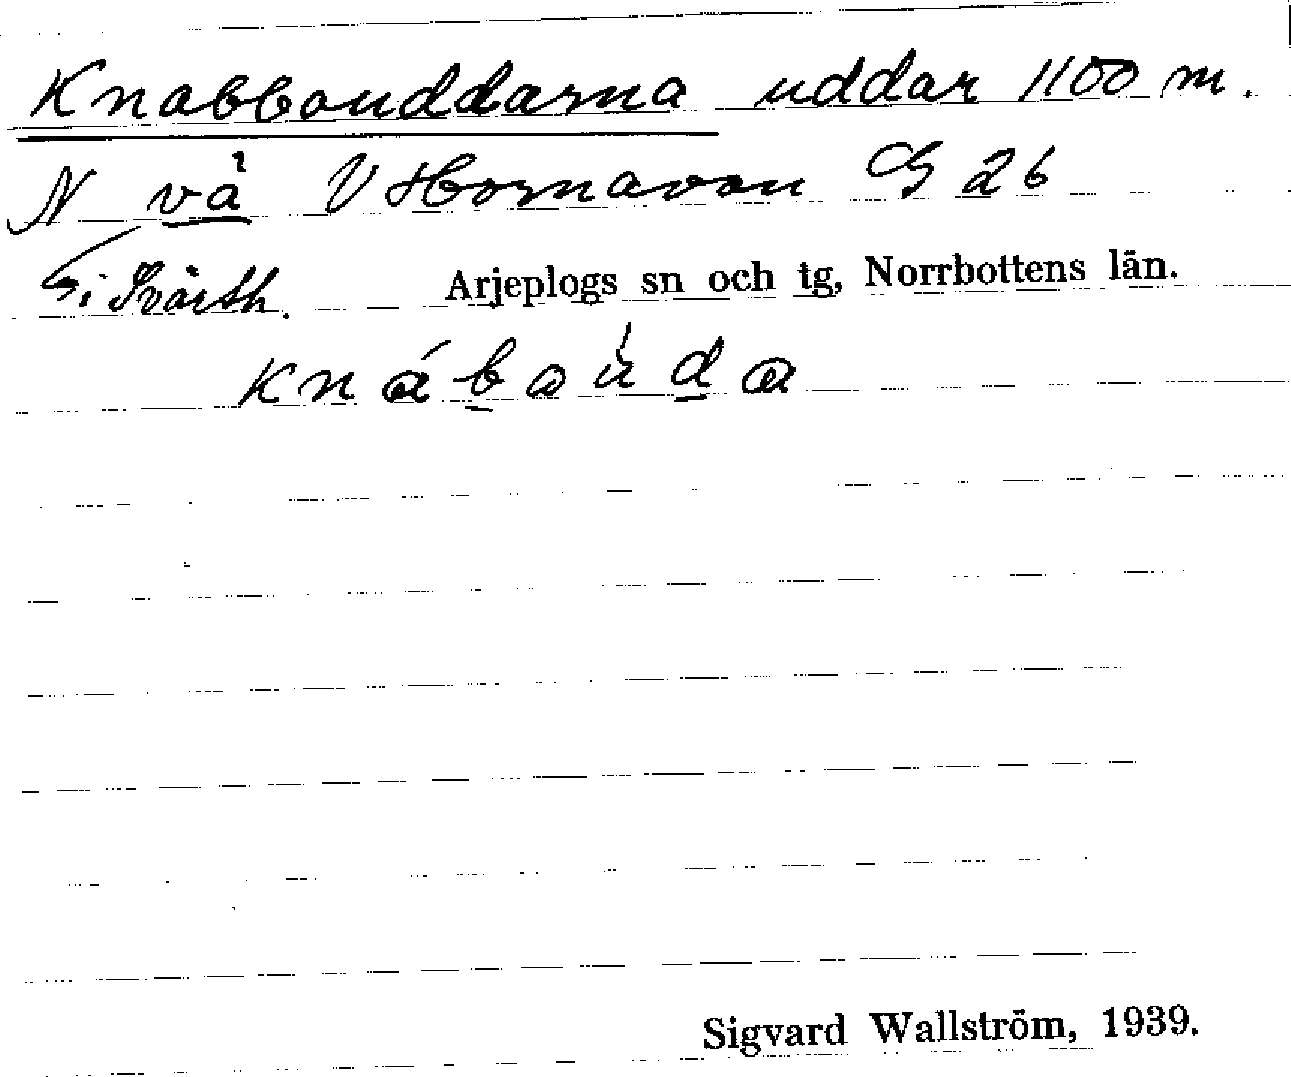 Knabbauddarna uddar 1100 m.
N vå V Hornavan G 26
Arjeplogs sn och tg, Norrbottens län.
Sigvard Wallström, 1939.